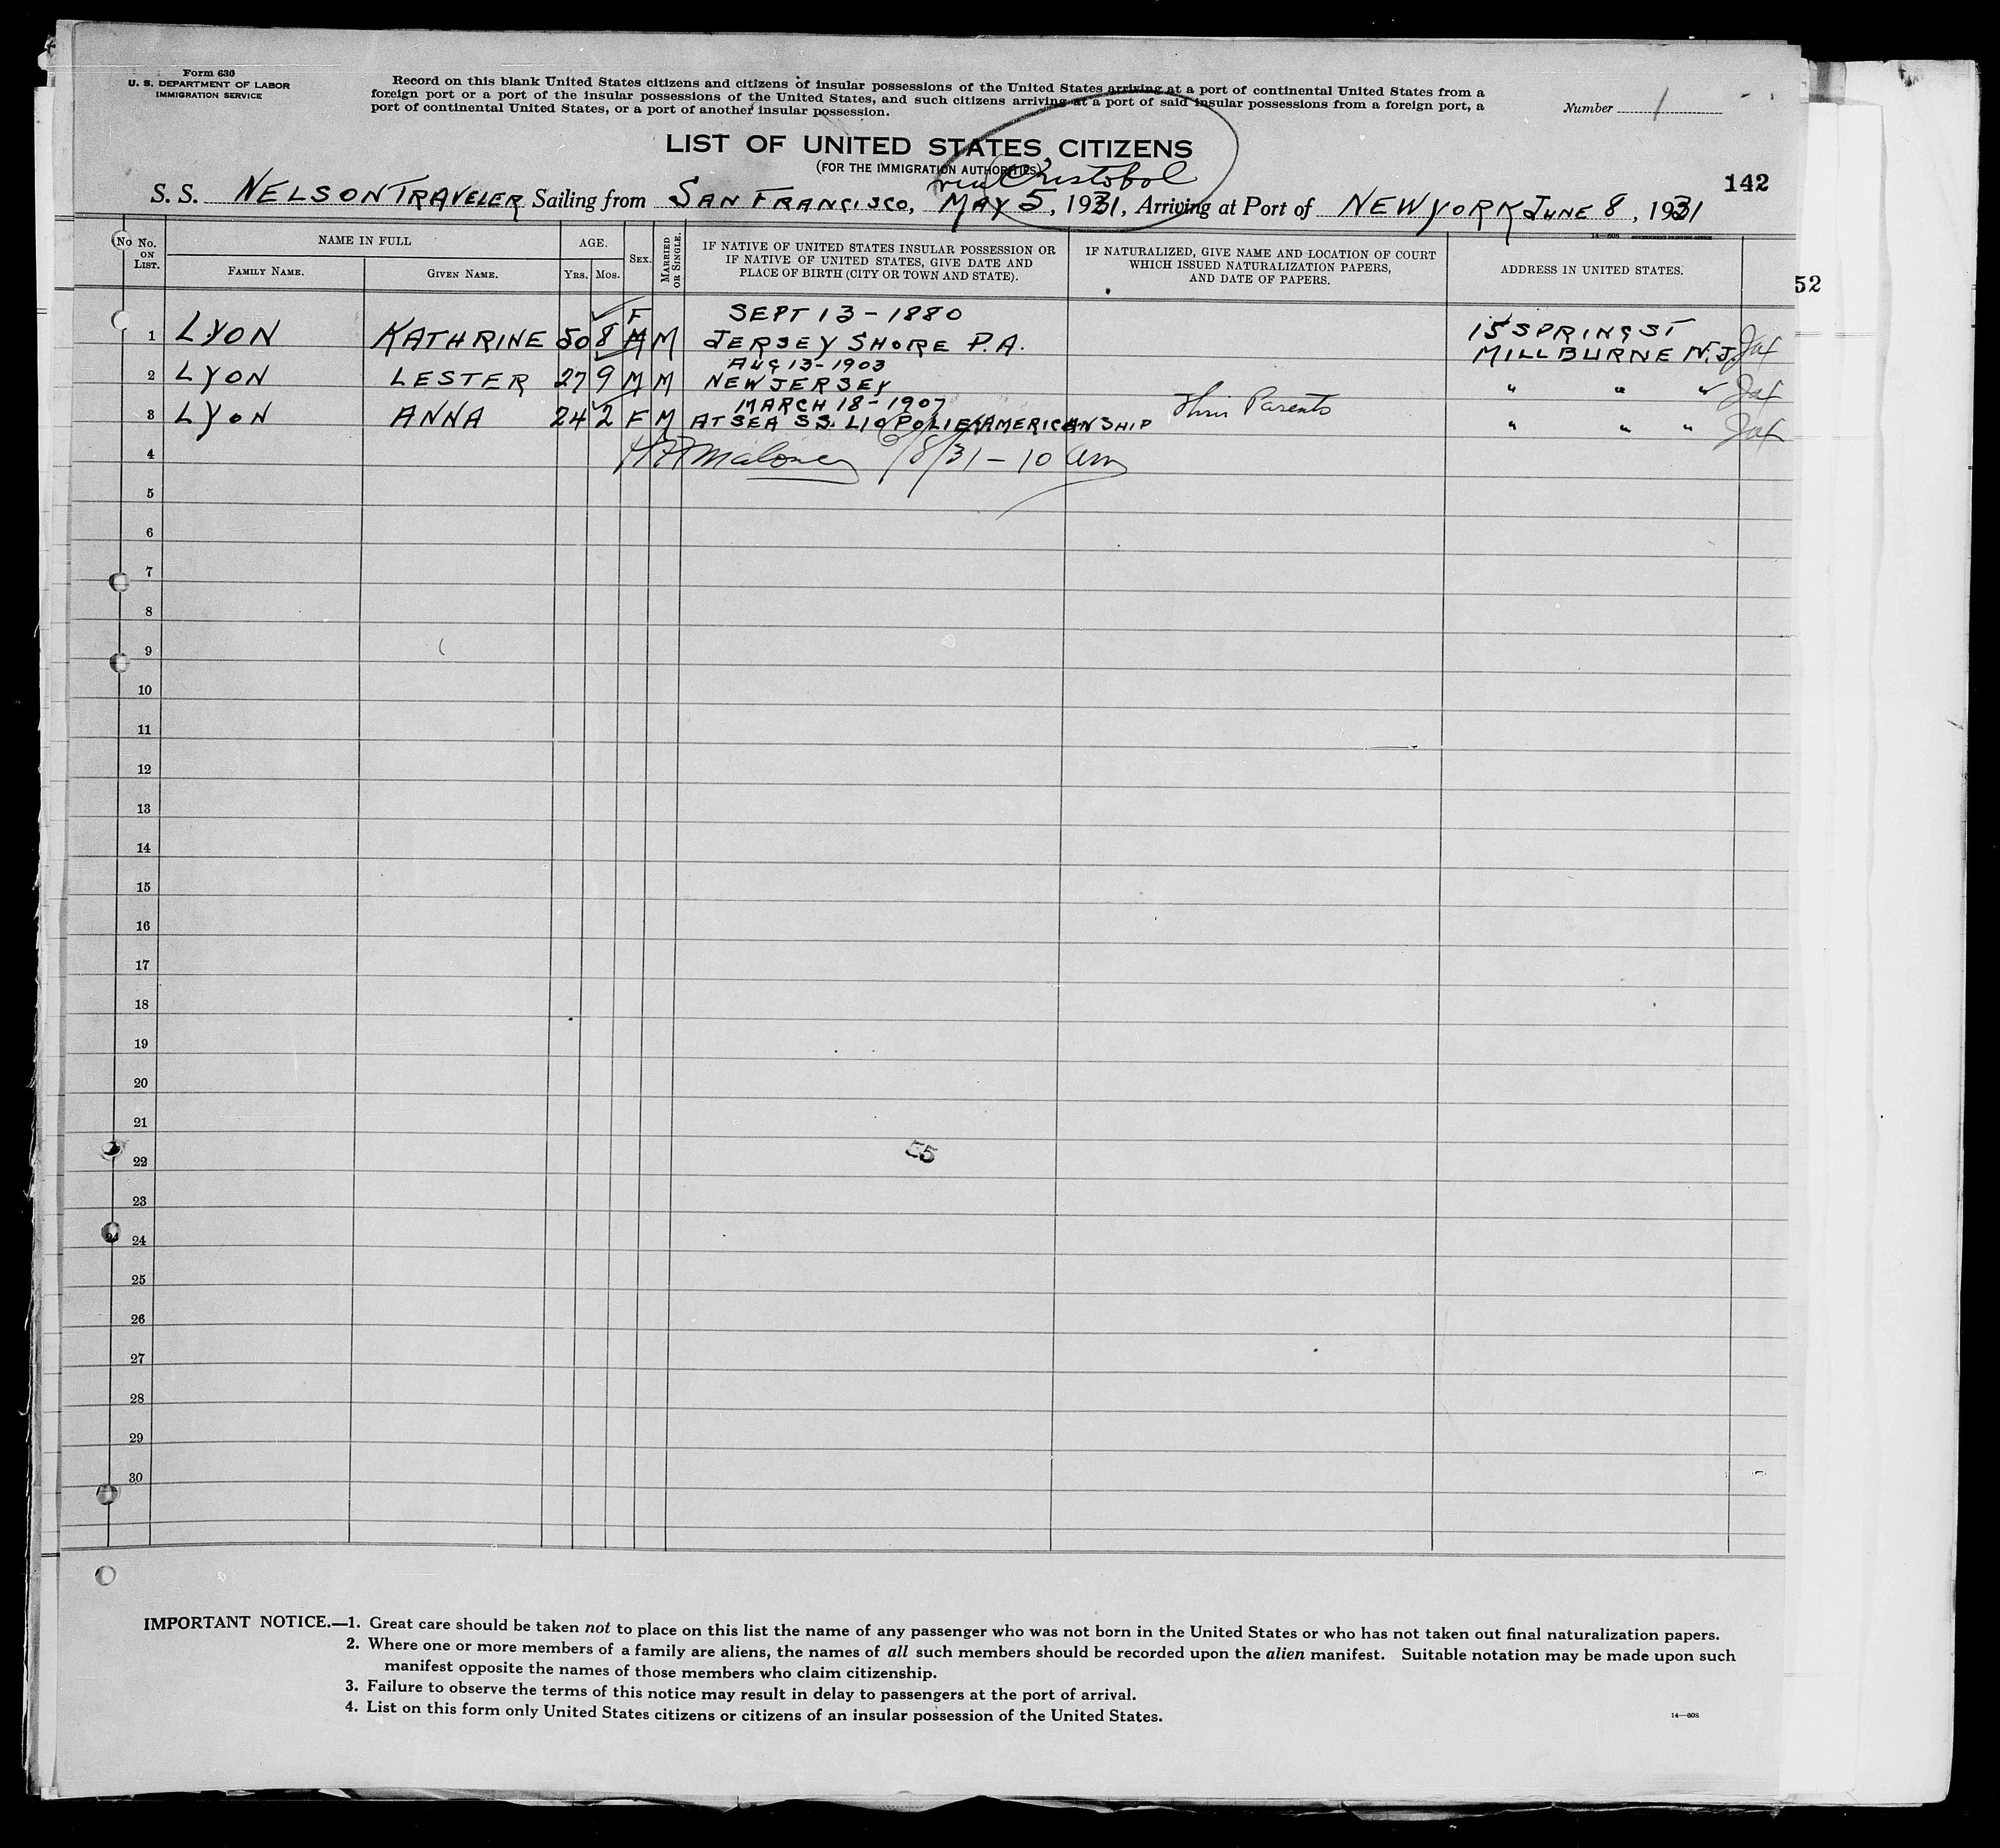 Form 630
U. S. DEPARTMENT OF LABOR
IMMIGRATION SERVICE
Record on this blank United States citizens and citizens of insular possessions of the United States arriving at a port of continental United States from a
foreign port or a port of the insular possessions of the United States, and such citizens arriving at a port of said insular possessions from a foreign port, a
port of continental United States, or a port of another insular possession.
Number 1
LIST OF UNITED STATES CITIZENS
(FOR THE IMMIGRATION AUTHORITIES)
via Cristobol
142
S. S. NELSON TRAVELER Sailing from SAN FRANCISCO, MAY 5, 1931, Arriving at Port of NEW YORK JUNE 8, 1931
14—608 GOVERNMENT PRINTING OFFICE
No No. ON LIST.
NAME IN FULL
FAMILY NAME. GIVEN NAME.
AGE.
YRS. MOS.
SEX.
MARRIED OR SINGLE.
IF NATIVE OF UNITED STATES INSULAR POSSESSION OR
IF NATIVE OF UNITED STATES, GIVE DATE AND
PLACE OF BIRTH (CITY OR TOWN AND STATE).
IF NATURALIZED, GIVE NAME AND LOCATION OF COURT
WHICH ISSUED NATURALIZATION PAPERS,
AND DATE OF PAPERS.
ADDRESS IN UNITED STATES.
52
F SEPT 13 - 1880 15 SPRING ST
1 LYON KATHRINE 50 8 M M JERSEY SHORE P.A. MILLBURNE N.J.
AUG 13 - 1903
2 LYON LESTER 27 9 M M NEW JERSEY " " "
MARCH 18 - 1907 Thru Parents
3 LYON ANNA 24 2 F M AT SEA S.S. AMERICAN SHIP " " "
4 Maloney 6/8/31 - 10 am
5
6
7
8
9
10
11
12
13
14
15
16
17
18
19
20
21
55
22
23
24
25
26
27
28
29
30
IMPORTANT NOTICE.—1. Great care should be taken not to place on this list the name of any passenger who was not born in the United States or who has not taken out final naturalization papers.
2. Where one or more members of a family are aliens, the names of all such members should be recorded upon the alien manifest. Suitable notation may be made upon such
manifest opposite the names of those members who claim citizenship.
3. Failure to observe the terms of this notice may result in delay to passengers at the port of arrival.
4. List on this form only United States citizens or citizens of an insular possession of the United States.
14—608